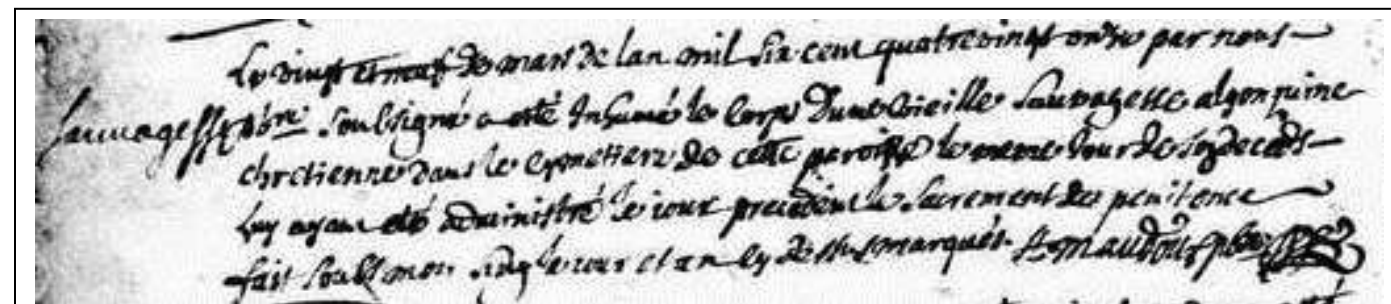 Le vingt et neuf de mars de lan mil six cent quatrevingt onze par nous
Sauvagesse
pbre soubsigné a esté Inhumé le corps dune vieille sauvagesse algonquine
chretienne dans le cymetiere de cette paroisse le meme Jour de son deceds
luy ayant esté administré le iour precedent le sacrement de penitence
fait soubs mon sing le iour et an cy dessus marqués.